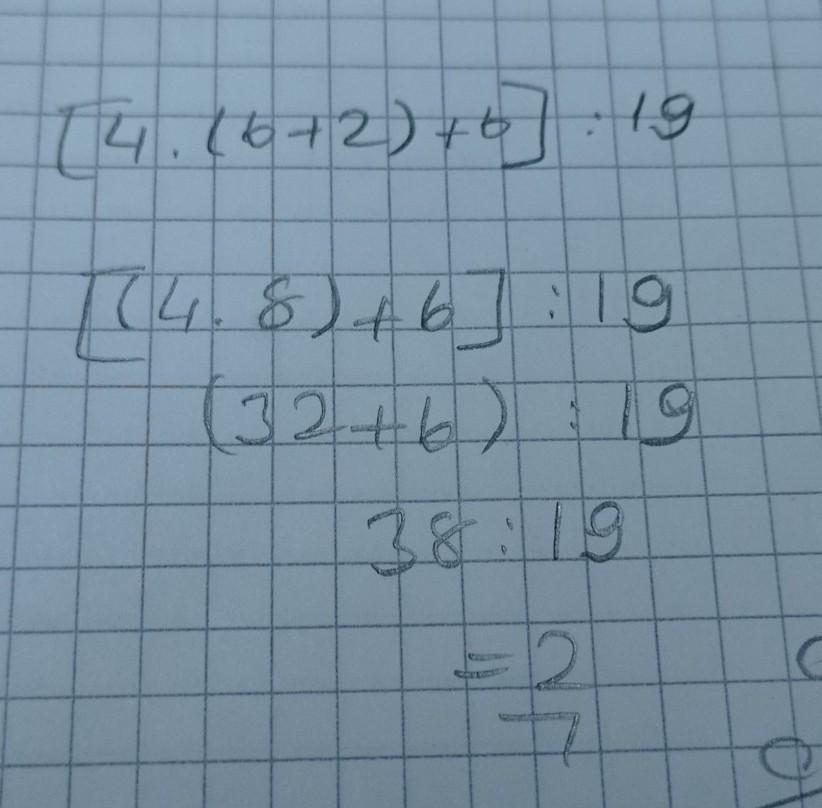 [4.(6+2)+6]:19
[(4.8)+6]:19
(32+6):19
38:19
=2